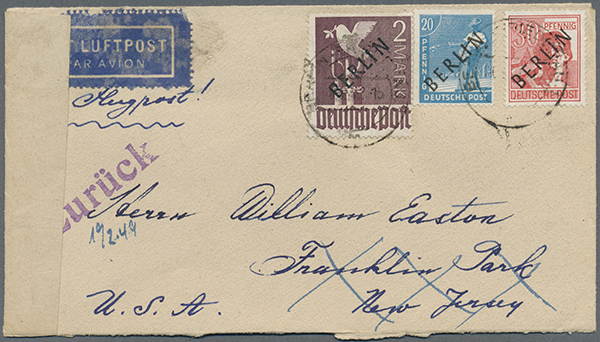 T LUFTPOST
PAR AVION
Flugpost!
2
MARK
Deutsche Post
BERLIN
20
PFENNIG
DEUTSCHE POST
BERLIN
PFENNIG
DEUTSCHE POST
BERLIN
Zurück
19/2.49
Herrn William Easton
Franklin Park
U.S.A. New Jersey